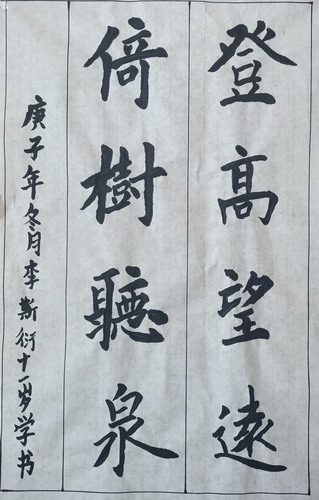 登高望遠
倚樹聽泉
庚子年冬月李斯衍十一岁学书